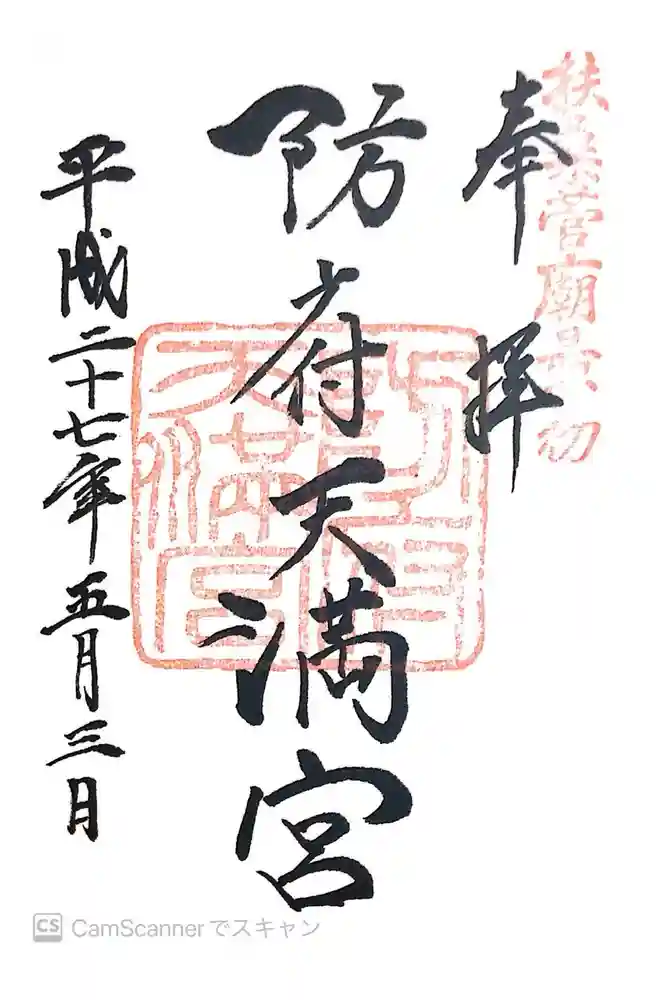 扶桑菅廟最初
奉拝
防府天満宮
平成二十七年五月三日
CS CamScannerでスキャン